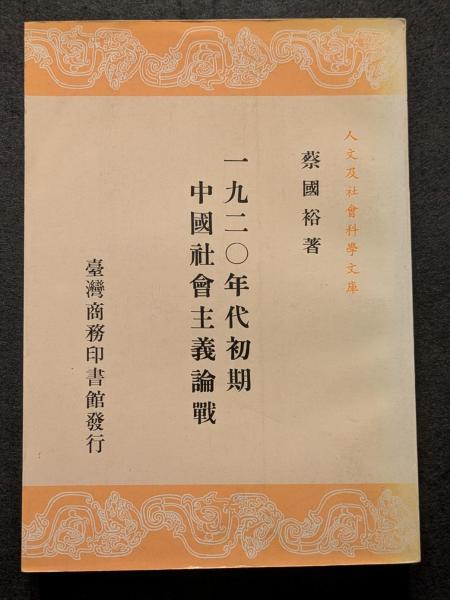 人文及社會科學文庫
蔡國裕著
一九二〇年代初期
中國社會主義論戰
臺灣商務印書館發行